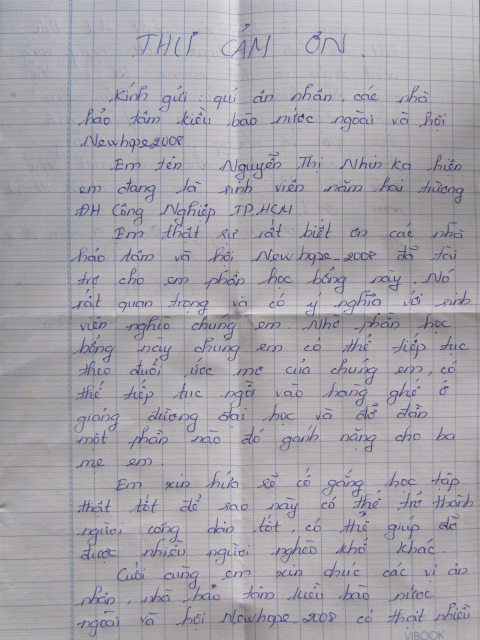 THƯ CẢM ƠN.
Kính gửi: quí ân nhân, các nhà
hảo tâm kiều bào nước ngoài và hội
Newhope2008
Em tên Nguyễn Thị Nhin Ka hiện
em đang là sinh viên năm hai trường
ĐH Công Nghiệp TP.HCM.
Em thật sự rất biết ơn các nhà
hảo tâm và hội Newhope_2008 đã tài
trợ cho em phần học bổng này. Nó
rất quan trọng và có ý nghĩa với sinh
viên nghèo chúng em. Nhờ phần học
bổng này chúng em có thể tiếp tục
theo đuổi ước mơ của chúng em, có
thể tiếp tục ngồi vào hàng ghế ở
giảng đường đại học và để dần
một phần nào đó gánh nặng cho ba
mẹ em.
Em xin hứa sẽ cố gắng học tập
thật tốt để sau này có thể trở thành
người công dân tốt, có thể giúp đỡ
được nhiều người nghèo khổ khác.
Cuối cùng em xin chúc các vị ân
nhân, nhà hảo tâm kiều bào nước
ngoài và hội Newhope_2008 có thật nhiều
VIBOOK